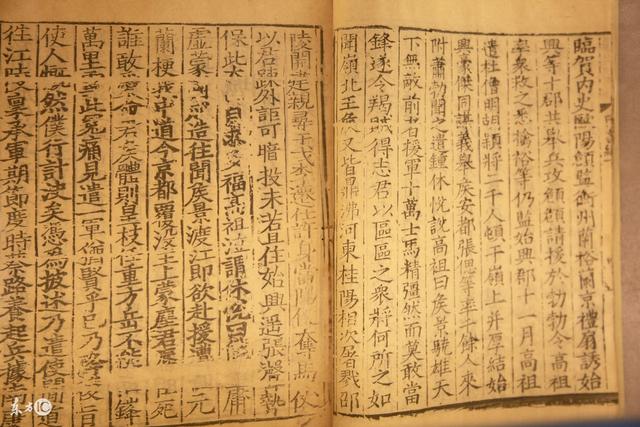 臨賀内史歐陽頠監衡州蘭裕蘭京禮扇誘始
興等十郡共舉兵攻頠頠請援於勃勃令高祖
率衆救之悉擒裕等仍監始興郡十一月高祖
遣杜僧明胡穎將二千人頓于嶺上并厚結始
興豪傑同謀義舉侯安都張偲等率千餘人來
附蕭勃聞之遣鍾休悅說高祖曰侯景驍雄天
下無敵前者援軍十萬士馬精彊然而莫敢當
鋒遂令羯賊得志君以區區之衆將何所之如
聞嶺北王侯又皆鼎沸河東桂陽相次屠戮邵
陵開建親尋干戈李遷仕許身當陽便奪馬仗
以君疎外詎可暗投未若且住始興遥張聲勢
保此太 自求多福高祖泣謂休悅曰 庸
虛蒙國成造往聞侯景渡江即欲赴援遭 元
蘭梗我中道今京都覆没主上蒙塵君辱臣死
誰敢愛命君侯體則皇枝任重方岳不能 鋒
萬里雪此冤痛見遣一軍猶賢乎已乃降後旨
使人慨然僕行計決矣憑為披述乃遣使間道
往江陵稟承軍期節度時蔡路養起兵據南
东方IC